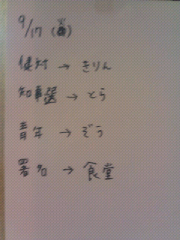 9/17 (火)
健対 → きりん
知事選 → とら
青年 → ぞう
署名 → 食堂